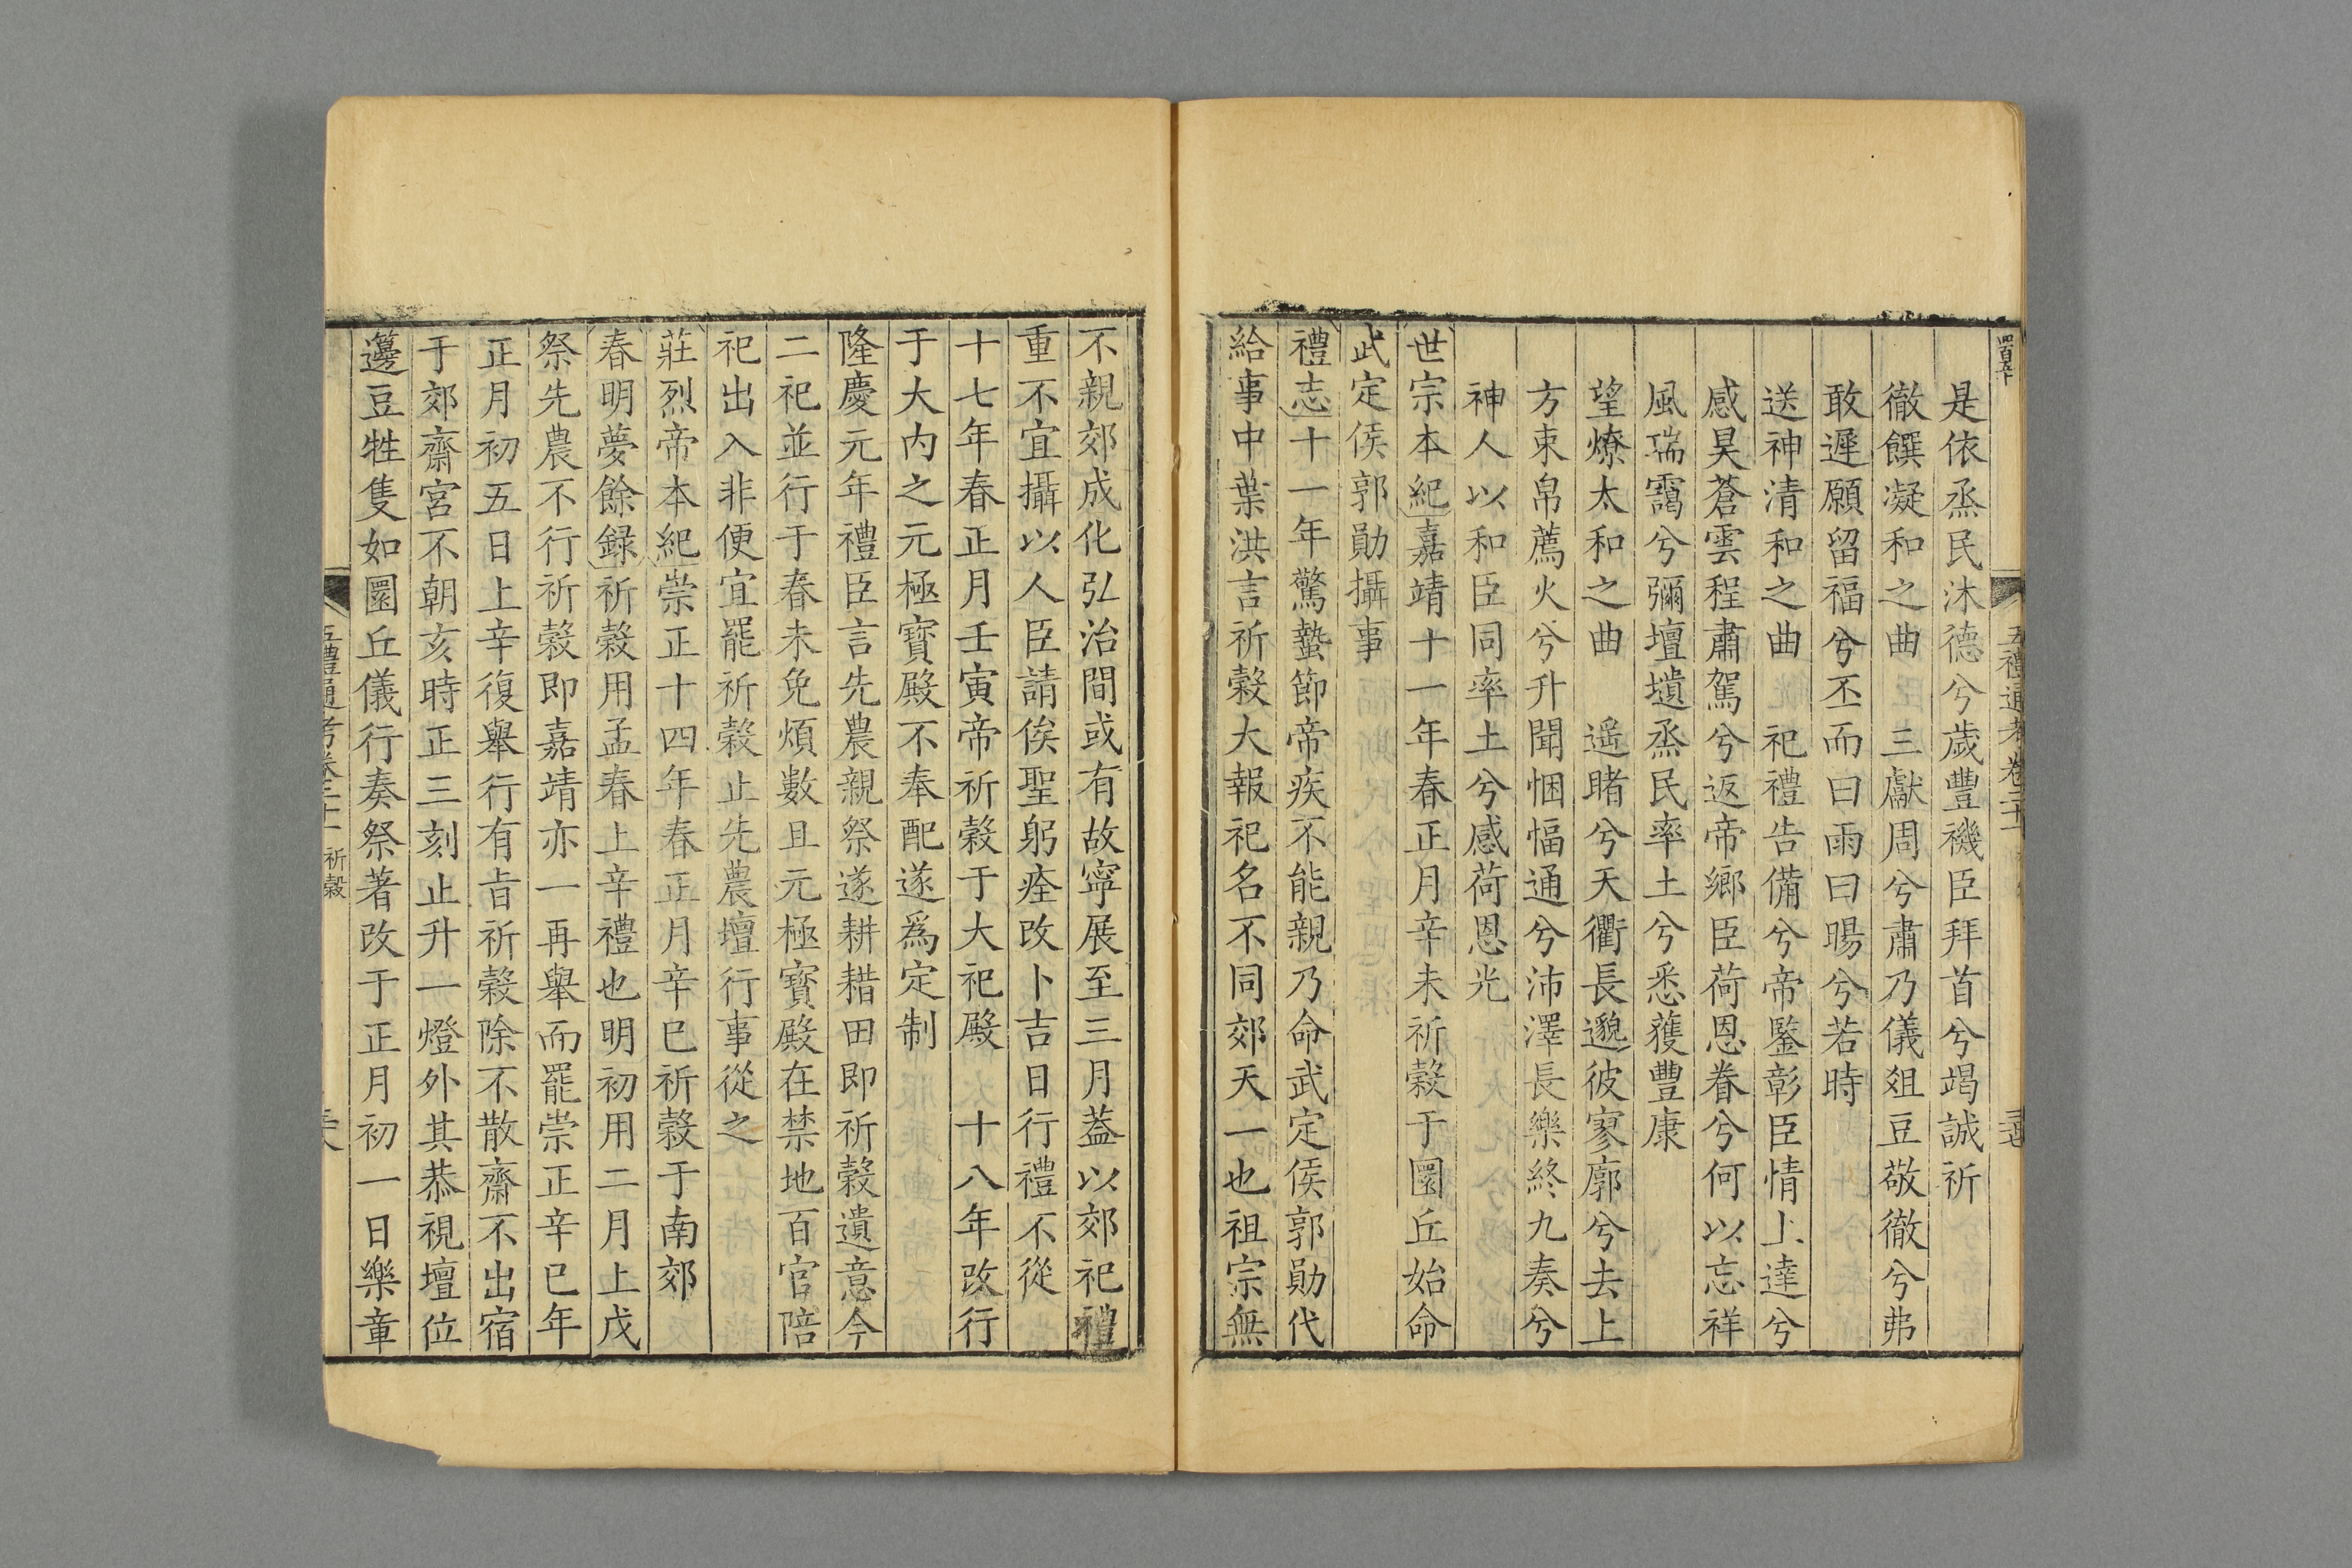 四百五十
五禮通考卷二十一
是依烝民沐德兮歲豐禨臣拜首兮竭誠祈
徹饌凝和之曲　三獻周兮肅乃儀俎豆敬徹兮弗
敢遲願留福兮丕而曰雨曰暘兮若時
送神清和之曲　祀禮告備兮帝鑒彰臣情上達兮
感昊蒼雲程肅駕兮返帝鄉臣荷恩眷兮何以忘祥
風瑞靄兮彌壇壝烝民率土兮悉獲豐康
望燎太和之曲　遥睹兮天衢長邈彼寥廓兮去上
方束帛薦火兮升聞悃愊通兮沛澤長樂終九奏兮
神人以和臣同率土兮感荷恩光
世宗本紀嘉靖十一年春正月辛未祈穀于圜丘始命
武定侯郭勛攝事
禮志十一年驚蟄節帝疾不能親乃命武定侯郭勛代
給事中葉洪言祈穀大報祀名不同郊天一也祖宗無
不親郊成化弘治間或有故寧展至三月蓋以郊祀禮
重不宜攝以人臣請俟聖躬痊改卜吉日行禮不從
十七年春正月壬寅帝祈穀于大祀殿　十八年改行
于大内之元極寳殿不奉配遂爲定制
隆慶元年禮臣言先農親祭遂耕耤田即祈穀遺意今
二祀並行于春未免煩數且元極寳殿在禁地百官陪
祀出入非便宜罷祈穀止先農壇行事從之
莊烈帝本紀崇正十四年春正月辛巳祈穀于南郊
春明夢餘録祈穀用孟春上辛禮也明初用二月上戊
祭先農不行祈穀即嘉靖亦一再舉而罷崇正辛巳年
正月初五日上辛復舉行有㫖祈穀除不散齋不出宿
于郊齋宮不朝亥時正三刻止升一燈外其恭視壇位
籩豆牲隻如圜丘儀行奏祭著改于正月初一日樂章
五禮通考卷二十一 祈穀